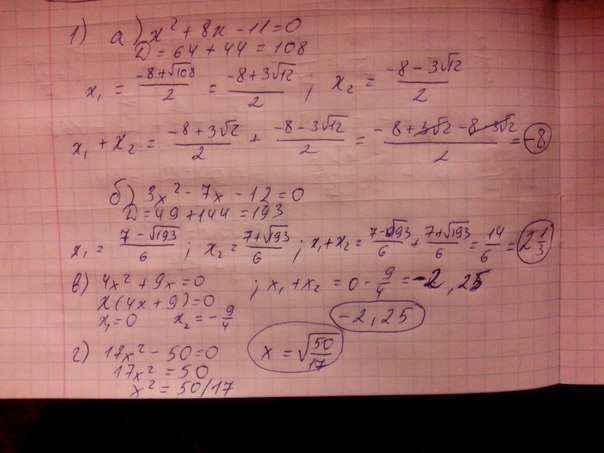 1) а) x² + 8x - 11 = 0
D = 64 + 44 = 108
x₁ = (-8+√108)/2 = (-8+3√12)/2 ; x₂ = (-8-3√12)/2
x₁ + x₂ = (-8+3√2)/2 + (-8-3√12)/2 = (-8+3√2-8-3√2)/2 = -8
б) 3x² - 7x - 12 = 0
D = 49 + 144 = 193
x₁ = (7-√193)/6 ; x₂ = (7+√193)/6 ; x₁+x₂ = (7-√193)/6 + (7+√193)/6 = 14/6 = 2 1/3
в) 4x² + 9x = 0 ; x₁ + x₂ = 0 - 9/4 = -2,25
x(4x+9) = 0
x₁ = 0 x₂ = -9/4 -2,25
г) 17x² - 50 = 0 x = √(50/17)
17x² = 50
x² = 50/17